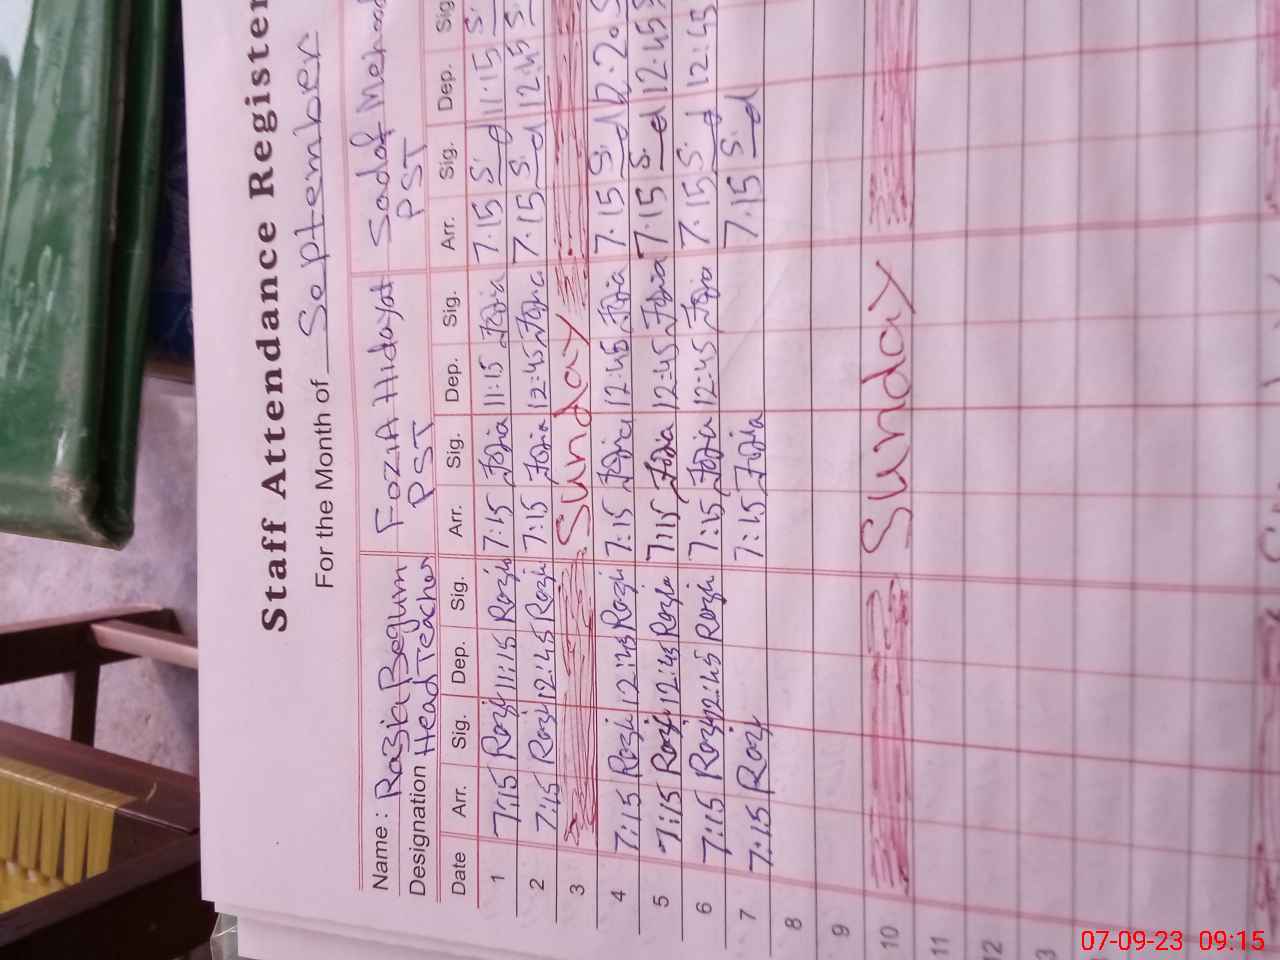 Staff Attendance Register
For the Month of September
Name : Razia Begum FoziA Hidayat Sadaf
Designation Head Teacher PST PST
Date Arr. Sig. Dep. Sig. Arr. Sig. Dep. Sig. Arr. Sig. Dep. Sig.
1 7:15 Razi 11:15 Razi 7:15 Fozia 11:15 Fozia 7.15 S.d 11.15 S.
2 7:15 Razi 12:45 Razi 7:15 Fozia 12:45 Fozia 7.15 S.d 12.45 S.
3 Sunday
4 7:15 Razi 12:45 Razi 7:15 Fozia 12:45 Fozia 7.15 S.d S
5 7:15 Razi 12:45 Razia 7:15 Fozia 12:45 Fozia 7.15 S.d 12.45 S
6 7:15 Razi 12:45 Razi 7:15 Fozia 12:45 Fozia 7.15 S.d 12:45
7 7:15 Razi 7:15 Fozia 7.15 S.d
8
9
10 Sunday
11
12
07-09-23 09:15